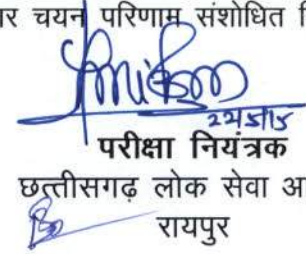 चयन परिणाम संशोधित
22/5/15
परीक्षा नियंत्रक
छत्तीसगढ़ लोक सेवा
रायपुर